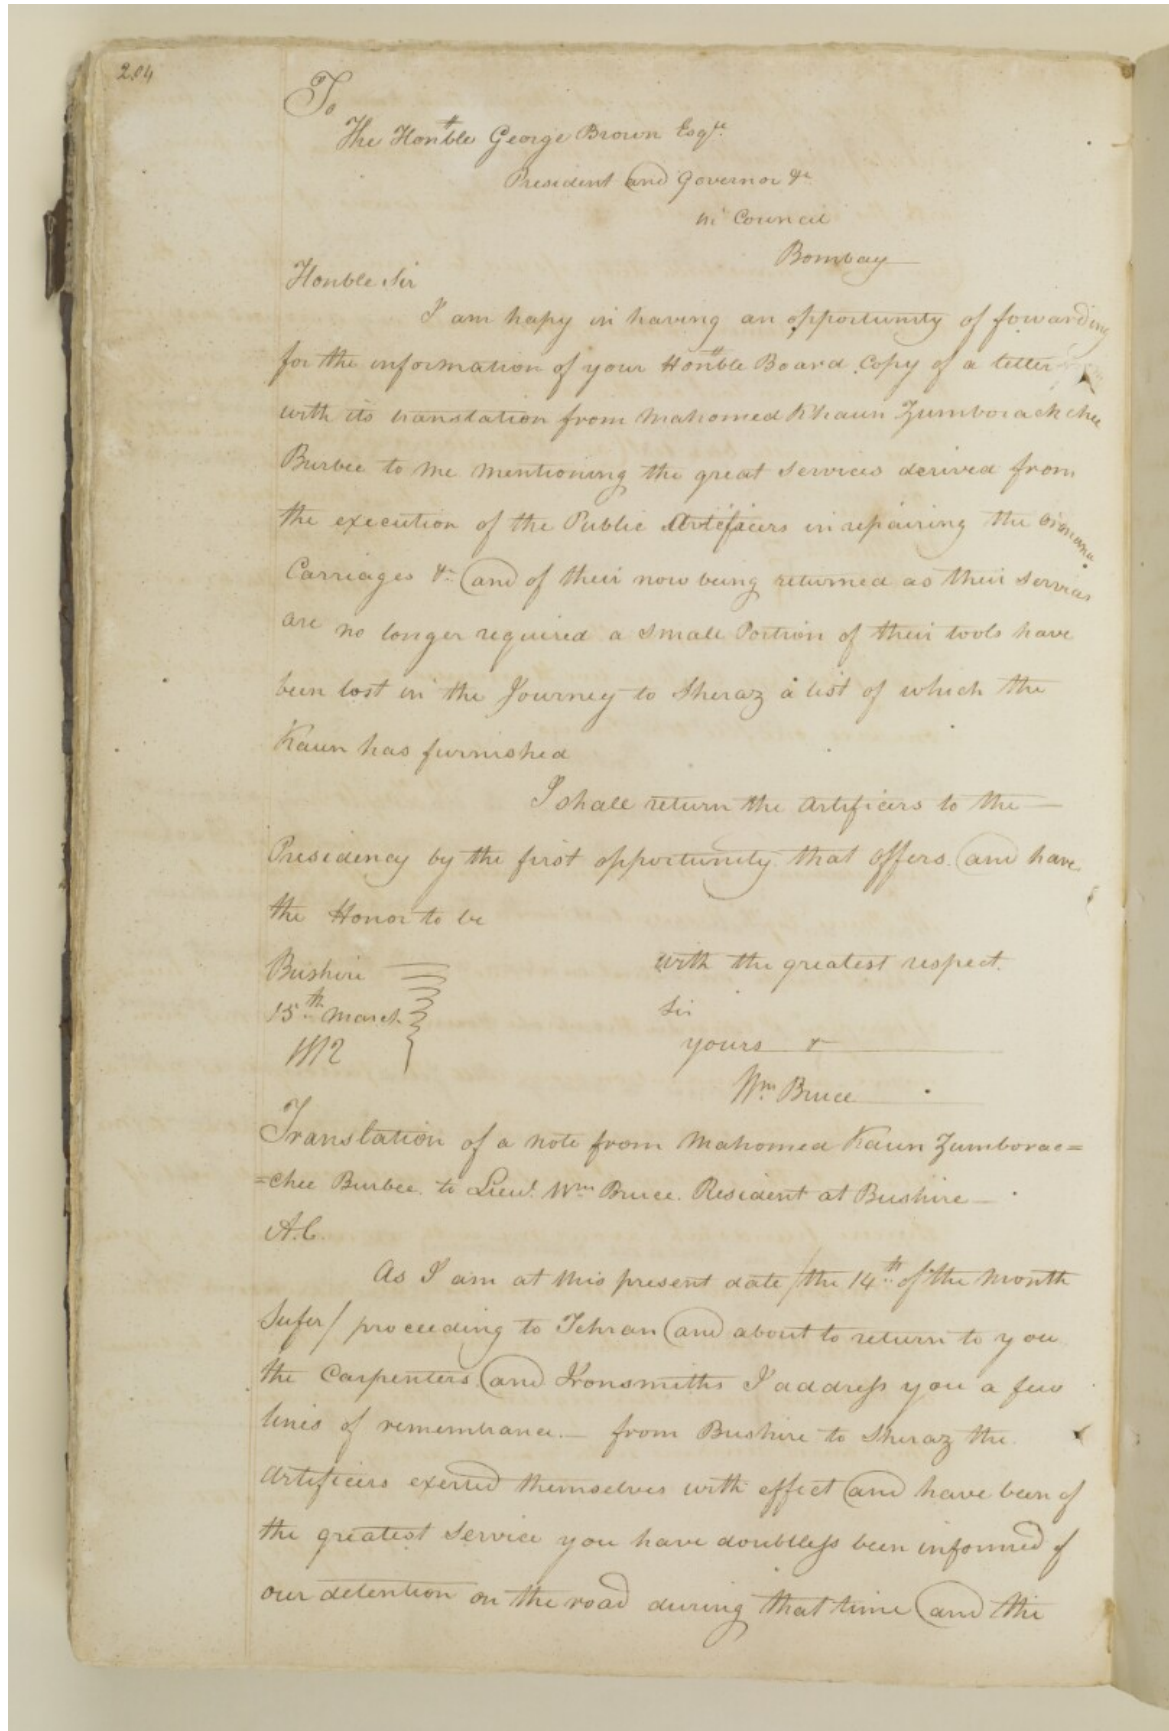 204
To
The Honble George Brown Esqre
President and Governor &c
in Council
Bombay
Honble Sir
I am hapy in having an opportunity of fowarding
for the information of your Honble Board Copy of a letter
with its translation from Mahomed Khaun Zumborackchee
Burbee to me mentioning the great services derived from
the execution of the Public Artificers in repairing the
Carriages &c and of their now being returned as their services
are no longer required a small Portion of their tools have
been lost in the Journey to Sheraz a list of which the
Kaun has furnished
I shall return the Artificers to the
Presidency by the first opportunity that offers and have
the Honor to be
Bushire
with the greatest respect.
15th March
Sir
1812
yours &
Wm Bruce
Translation of a note from Mahomed Kaun Zumborac=
=chee Burbee to Lieut. Wm Bruce Resident at Bushire
A.C.
As I am at this present date / the 14th of the Month
Sufer / proceeding to Tehran and about to return to you
the Carpenters and Ironsmiths I address you a few
lines of remembrance. from Bushire to Sheraz the
Artificers exerted themselves with effect and have been of
the greatest Service you have doubtless been informed of
our detention on the road during that time and the